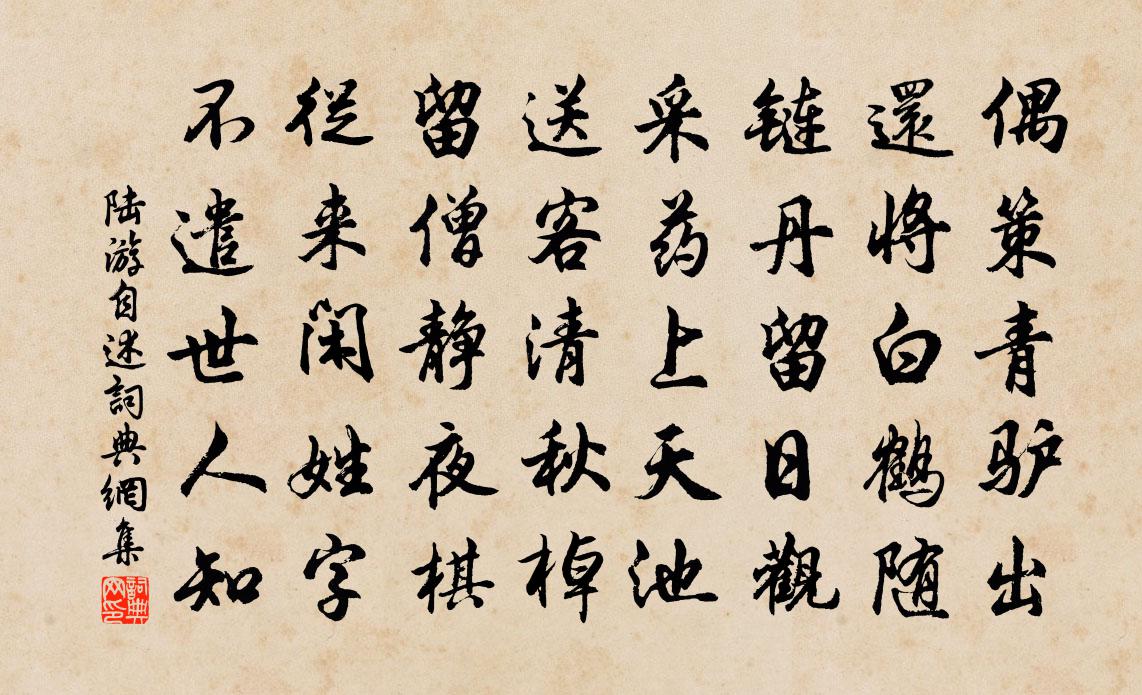 偶策青驴出
還将白鹤随
链丹留日觀
采药上天池
送客清秋棹
留僧静夜棋
從来闲姓字
不遣世人知
陆游自述詞典網集
詞典网印